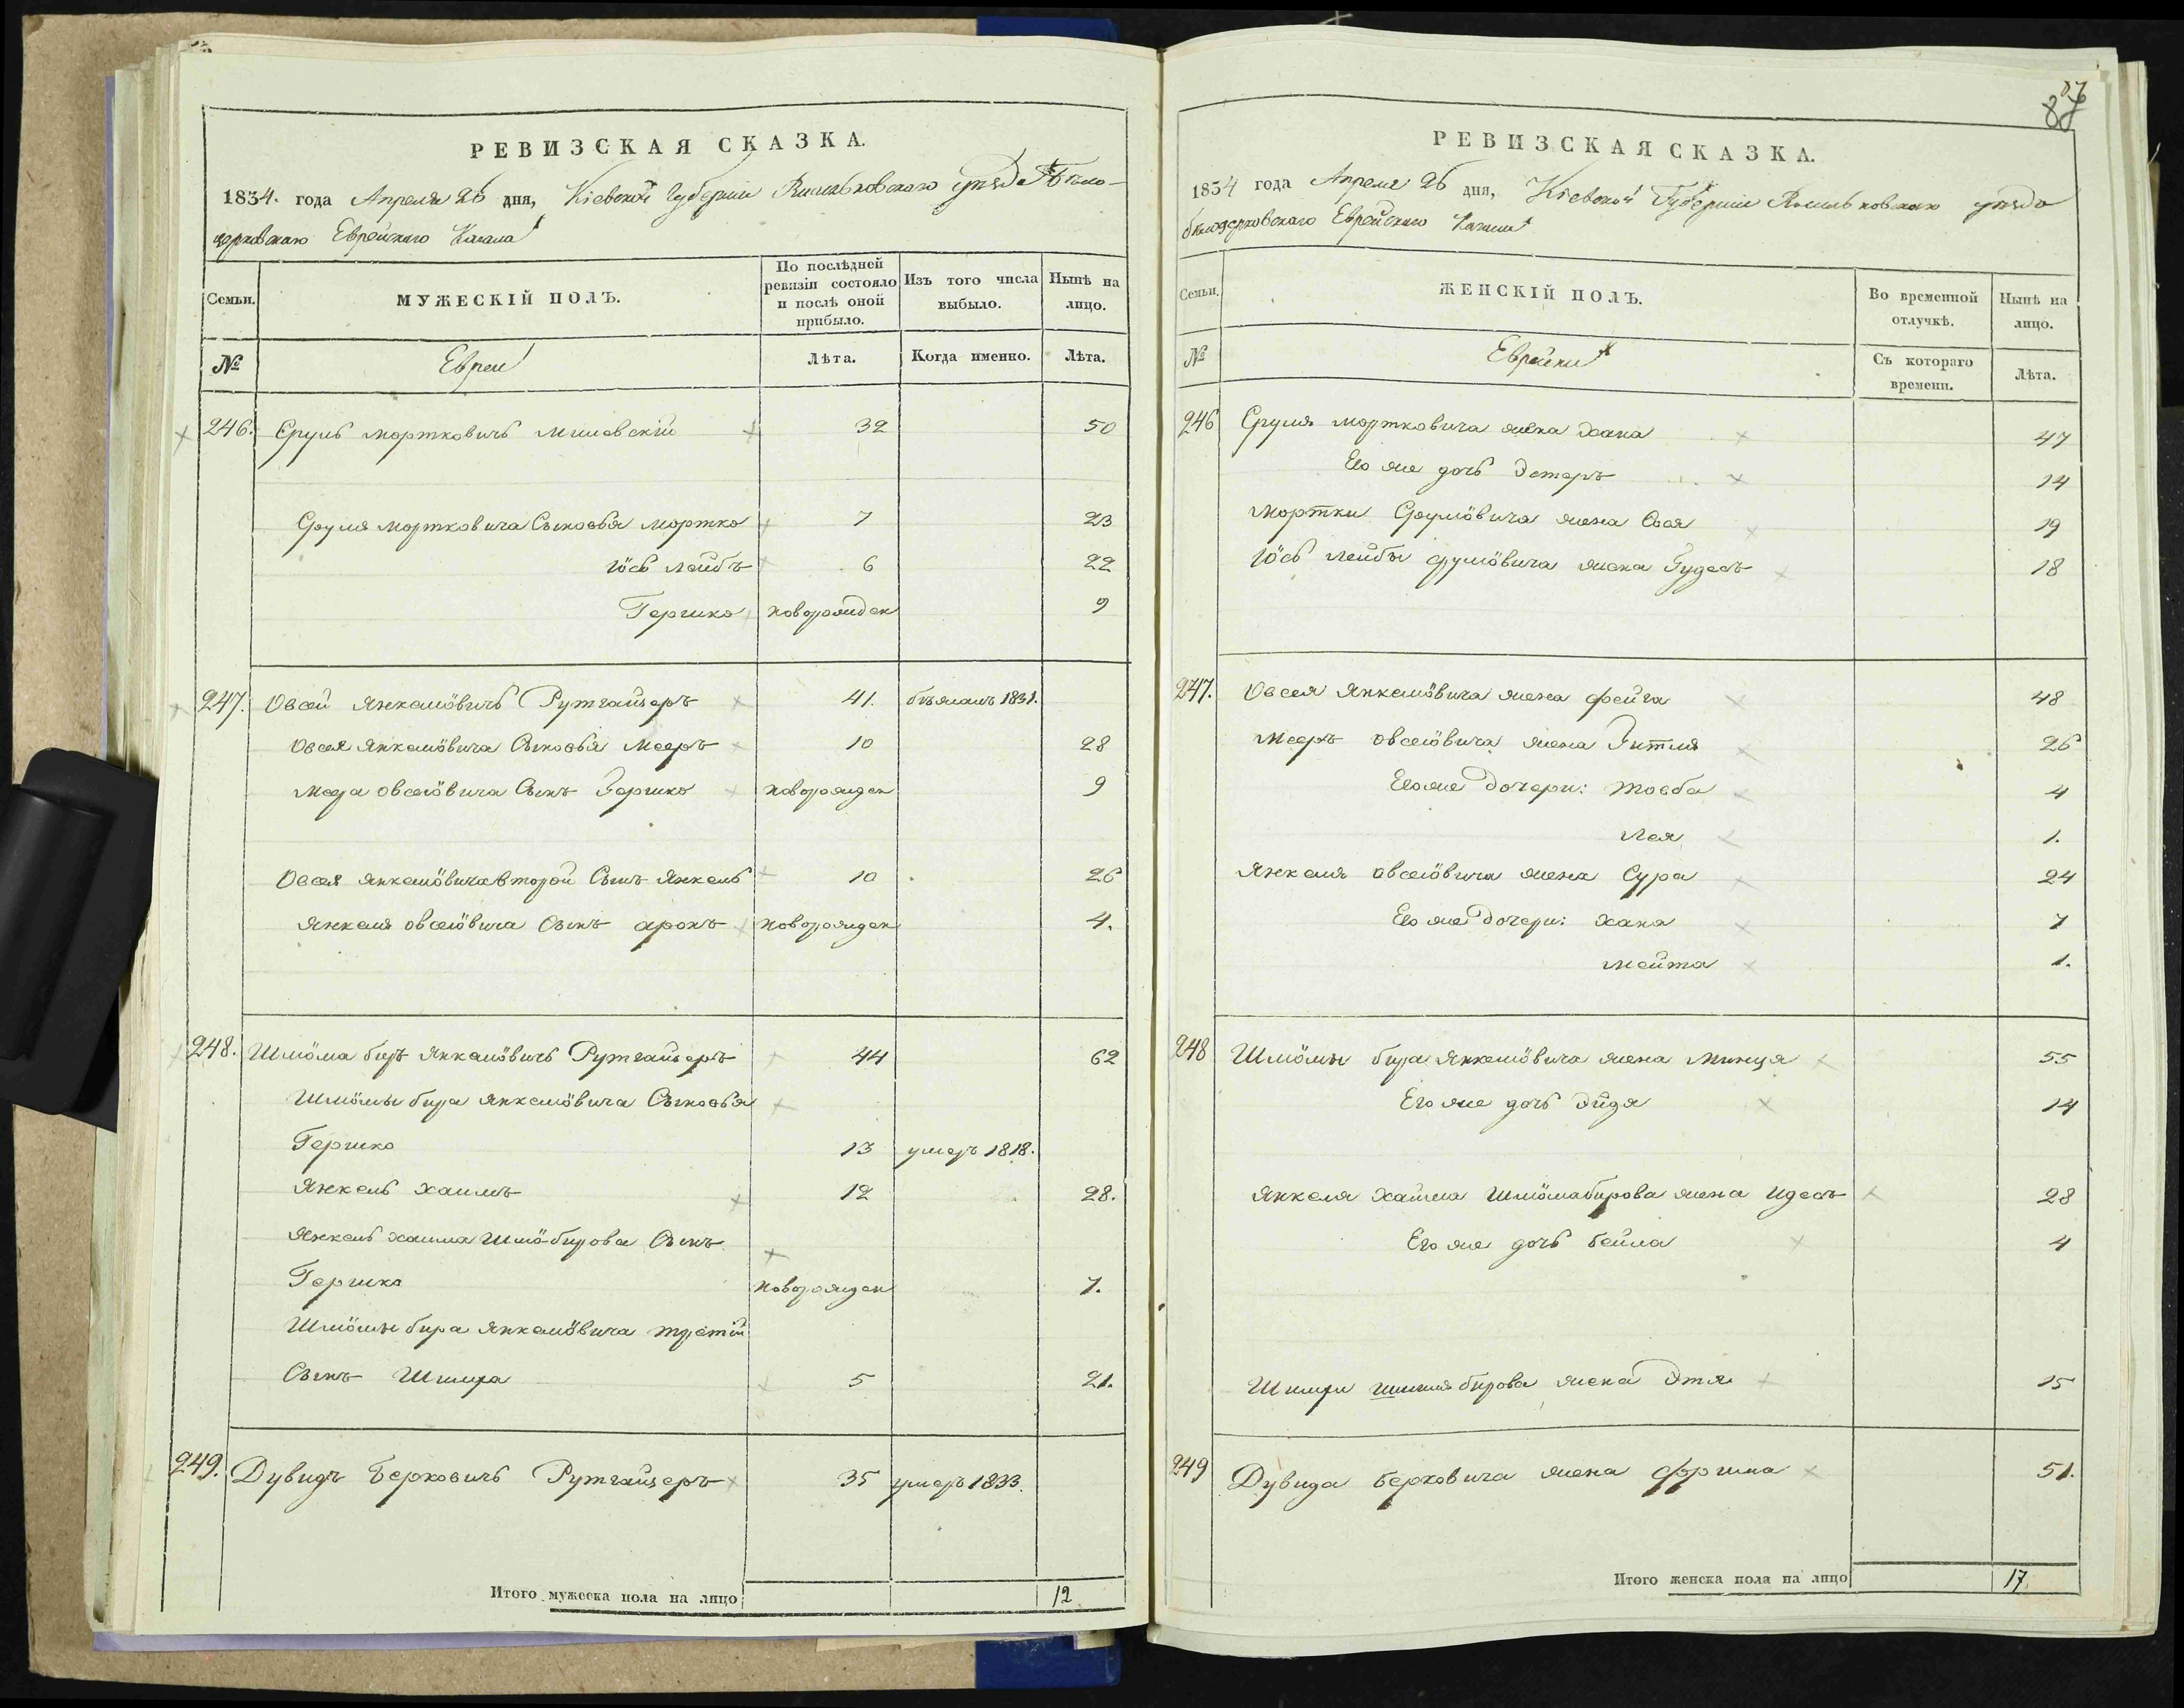 РЕВИЗСКАЯ СКАЗКА.
1834. года Апреля 26 дня, Кіевской Губерніи Васильковского уезда Бѣло-
церковскаго Еврейскаго Кагала
Семьи.
МУЖЕСКІЙ ПОЛЪ.
По послѣдней ревизіи состояло и послѣ оной прибыло.
Изъ того числа выбыло.
Нынѣ на лицо.
№
Евреи
Лѣта.
Когда именно.
Лѣта.
246. Сруль Мортковичъ 32 50
Сруля Мортковича Сыновья Мортко 7 23
Іось Лейбъ 6 22
Гершко новорожден 9
247. Овсей Янкелёвичъ Рутгайзеръ 41. бѣжалъ 1831.
Овсея Янкелёвича Сыновья Мееръ 10 28
Меера Овсеёвича Сынъ Гершко новорожден 9
Овсея Янкелёвича второй Сынъ Янкель 10 26
Янкеля Овсеёвича Сынъ Аронъ новорожден 4.
248. Шлёма Беръ Янкелёвичъ Рутгайзеръ 44 62
Шлёмы Бера Янкелёвича Сыновья
Гершко 13 умеръ 1818.
Янкель Хаимъ 12 28.
Янкель Хаима Шлё-Берова Сынъ
Гершко новорожден 7.
Шлёмы Бера Янкелёвича третій
Сынъ Шмера 5 21.
249. Дувидъ Берковичъ Рутгайзеръ 35 умеръ 1833.
Итого мужеска пола на лицо 12
87
РЕВИЗСКАЯ СКАЗКА.
1834 года Апреля 26 дня, Кіевской Губерніи Васильковскаго уезда
Белоцерковскаго Еврейскаго Кагала
Семьи.
ЖЕНСКІЙ ПОЛЪ.
Во временной отлучкѣ.
Нынѣ на лицо.
№
Еврейки
Съ котораго времени.
Лѣта.
246 Сруля Мортковича жена Хана 47
Его же дочь Эстеръ 14
Мортки Срулёвича жена Сося 19
Іось Лейбы Срулёвича жена Гудесъ 18
247. Овсея Янкелёвича жена Фейга 48
Мееръ Овсеёвича жена Гитля 26
Его же дочери: Товба 4
Лея 1.
Янкеля Овсеёвича жена Сура 24
Его же дочери: Хана 7
Мейта 1.
248 Шлёмы Бера Янкелёвича жена Минця 55
Его же дочь Эйдя 14
Янкеля Хаима Шлёмаберова жена Идесъ 28
Его же дочь Бейла 4
Шмери Берова жена Этя 15
249 Дувида Берковича жена Фрима 51.
Итого женска пола на лицо 17.